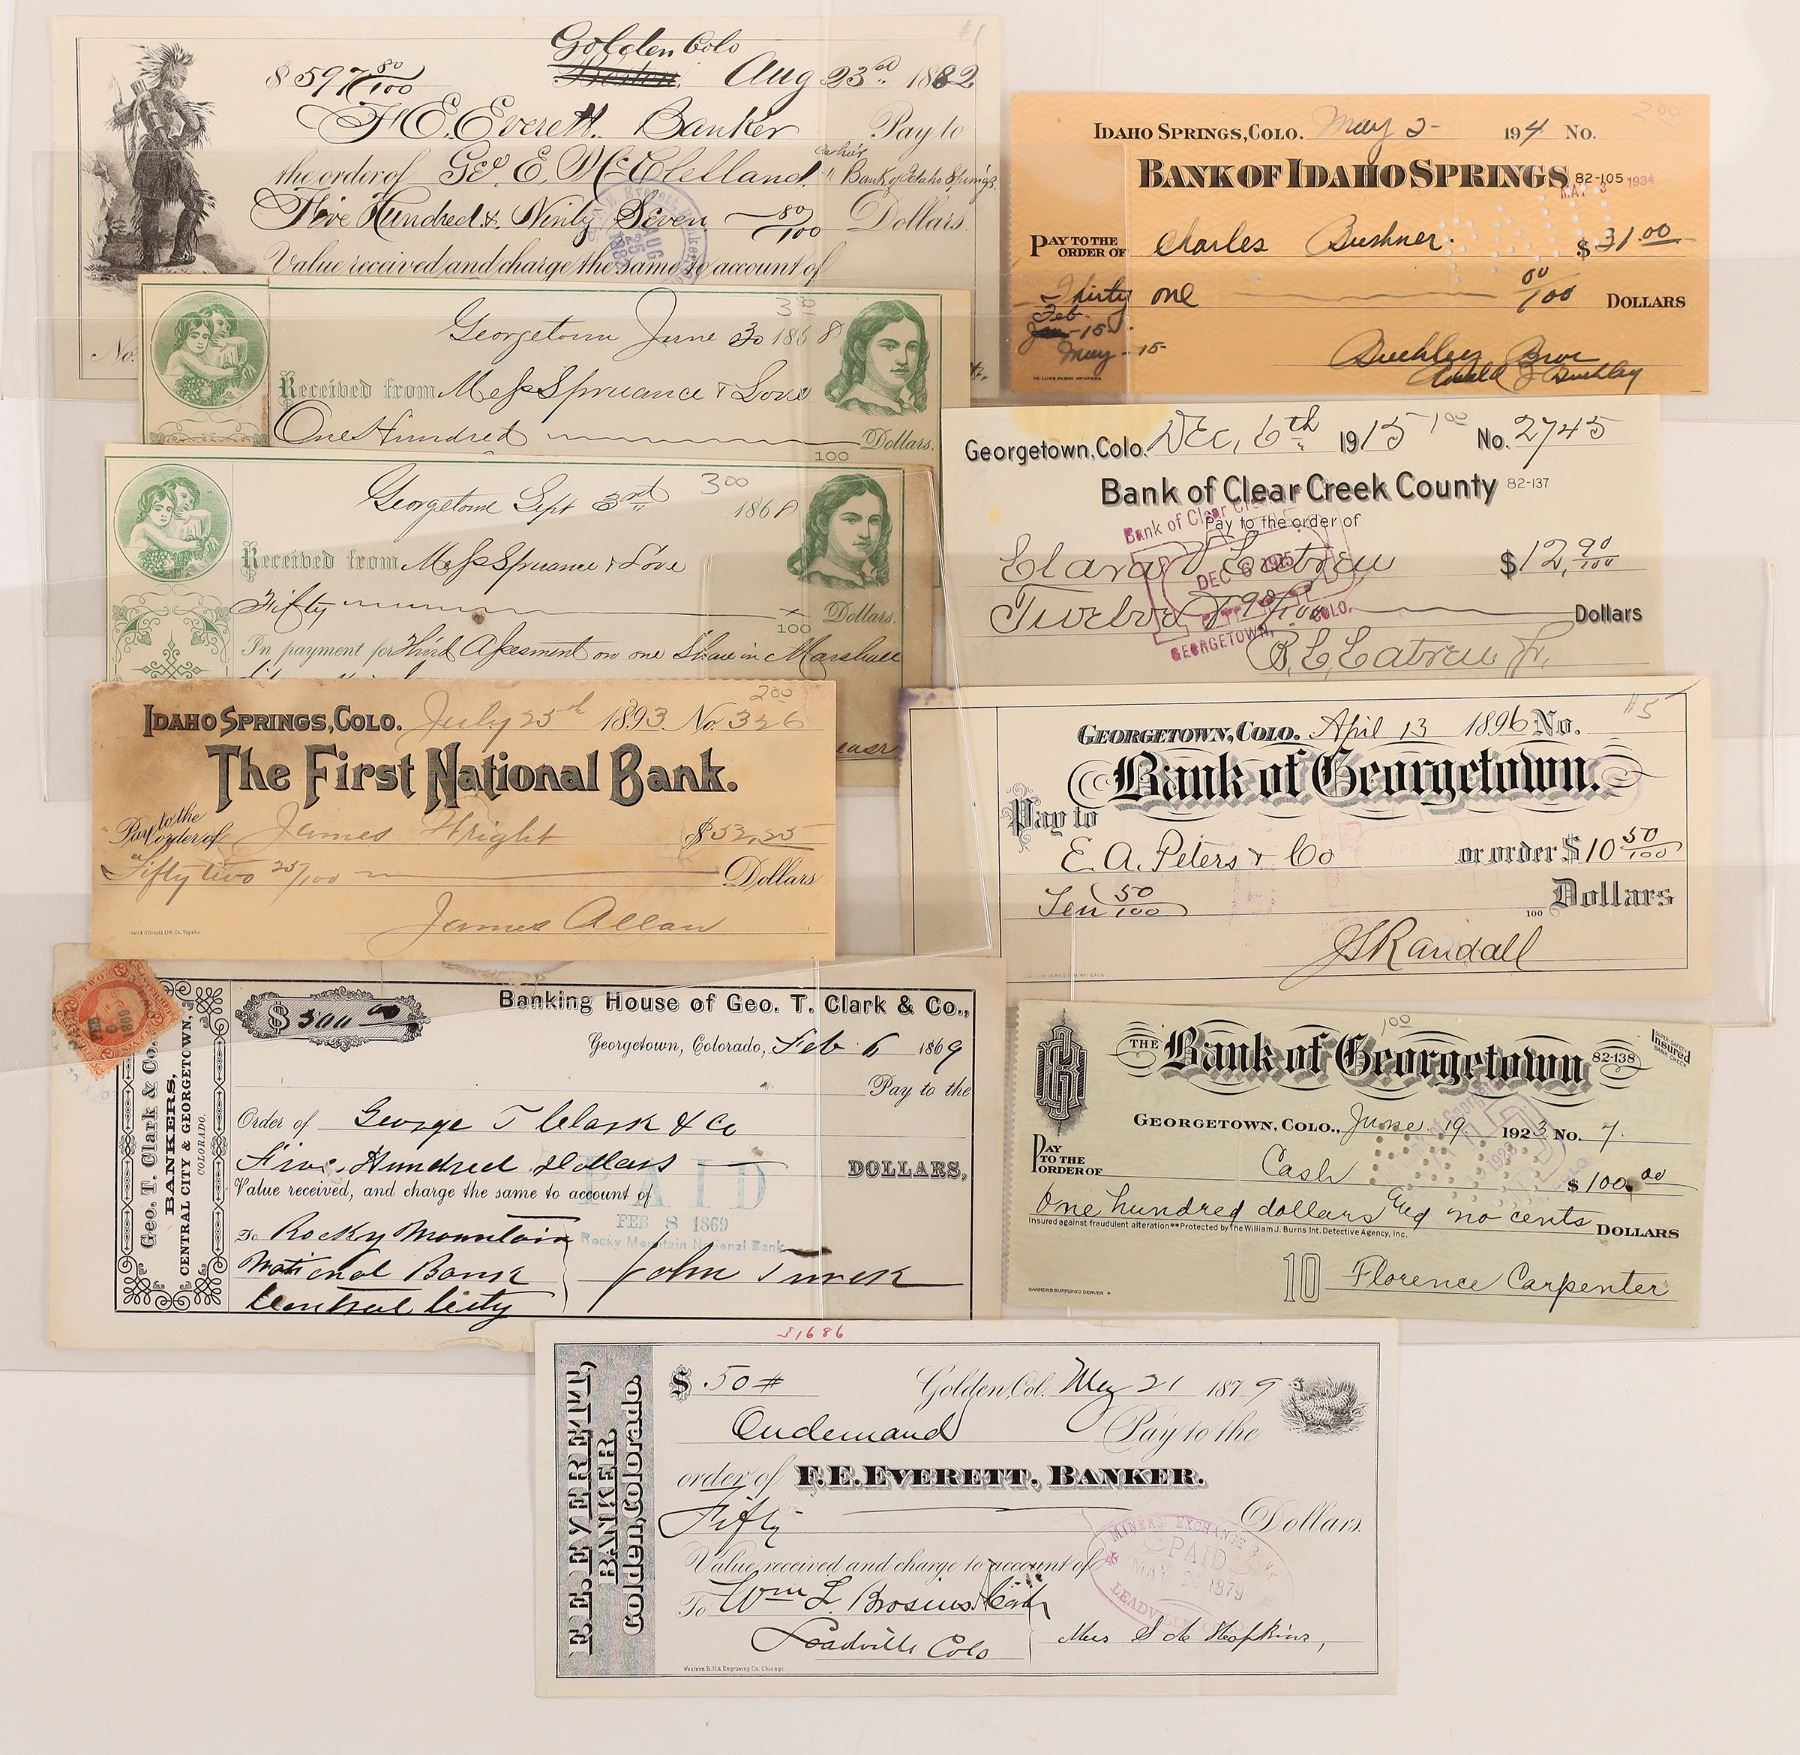 $1
Golden Colo
$597 80/100 Boston, Aug 23rd. 1882
F. E. Everett. Banker Pay to
the order of Geo. E. McClelland. Cashier Bank of Idaho Springs
Five Hundred & Ninty Seven 80/100 Dollars.
AUG 25 1882
Value received and charge the same to account of
No.
300
Georgetown June 30 1868
Received from Mess Spruance & Love
One Hundred Dollars.
100
300
Georgetown Sept 3rd 1868
Received from Mess Spruance & Love
Fifty Dollars.
100
In payment for Third Assesment on one Share in Marshall
200
Idaho Springs, Colo. July 25th 1893 No. 326
The First National Bank.
Pay to the order of James Wright $52.25
Fifty two 25/100 Dollars
James Allan
Hall & O'Donald Lith. Co. Topeka
Geo. T. Clark & Co.
BANKERS,
CENTRAL CITY & GEORGETOWN,
COLORADO.
FEB 6 1869
$ 500 00
Banking House of Geo. T. Clark & Co.,
Georgetown, Colorado, Feb 6 1869
Pay to the
Order of George T Clark & Co
Five Hundred Dollars DOLLARS,
Value received, and charge the same to account of
PAID
FEB 8 1869
Rocky Mountain National Bank
To Rocky Mountain
National Bank
Central City
John Turck
200
Idaho Springs, Colo. May 2 194 No.
Bank of Idaho Springs 82-105
MAY 3 1934
PAID
Pay to the order of Charles Bushner. $31.00
Thirty one 00/100 Dollars
Feb.
Jan-15
May-15-
Buchley Bros
DE LUXE CHECK PRINTERS
100
Georgetown, Colo. Dec, 6th 1915 No. 2745
Bank of Clear Creek County 82-137
Pay to the order of
Clara V Eatreu $12, 90/100
Twelve & 90/100 Dollars
Bank of Clear Creek
DEC 6 1915
GEORGETOWN, COLO.
B. E. Eatreu Jr.
#5
Georgetown, Colo. April 13 1896 No.
Bank of Georgetown.
Pay to
E. A. Peters & Co or order $10 50/100
Ten 50/100 Dollars
100
J S Randall
100
The Bank of Georgetown 82-138
Insured
Georgetown, Colo., June 19 1923 No. 7.
Pay to the order of Cash $100.00
PAID
One hundred dollars and no cents Dollars
Insured against fraudulent alteration**Protected by The William J. Burns Int. Detective Agency, Inc.
10 Florence Carpenter
BANKERS SUPPLY CO DENVER
31686
F. E. EVERETT,
BANKER.
Golden, Colorado.
$ 50# Golden, Col. May 21 1879
On demand Pay to the
order of F. E. Everett, Banker.
Fifty Dollars.
Value received and charge to account of
MINERS' EXCHANGE BANK
PAID
MAY 1879
LEADVILLE
To Wm L. Brosius Cash
Leadville Colo
Mrs S M Hopkins,
Western B.N.& Engraving Co. Chicago.